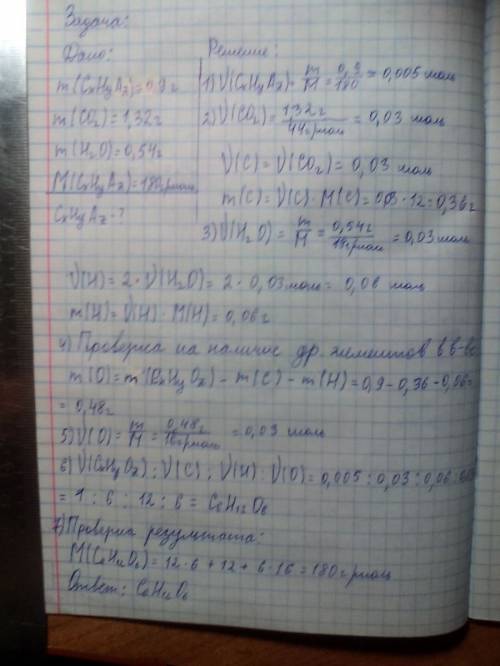 Задача:
Дано:
m(CxHyAz)=0,9г
m(CO2)=1,32г
m(H2O)=0,54г
M(CxHyAz)=180г/моль
CxHyAz-?
Решение:
1) ν(CxHyAz)= m/M = 0,9/180 = 0,005 моль
2) ν(CO2)= 1,32г/44г/моль = 0,03 моль
ν(C)=ν(CO2)=0,03 моль
m(C)=ν(C)·M(C)=0,03·12=0,36г
3) ν(H2O)= m/M = 0,54г/18г/моль = 0,03 моль
ν(H)=2·ν(H2O)=2·0,03 моль= 0,06 моль
m(H)=ν(H)·M(H)=0,06г
4) Проверка на наличие др. элементов в в-ве
m(O)=m(CxHyOz)-m(C)-m(H)=0,9-0,36-0,06=
=0,48г
5) ν(O)= m/M = 0,48г/16г/моль = 0,03 моль
6) ν(CxHyOz):ν(C):ν(H):ν(O)=0,005:0,03:0,06:
=1:6:12:6=C6H12O6
7) Проверка результата:
M(C6H12O6)=12·6+12+6·16=180г/моль
Ответ: C6H12O6